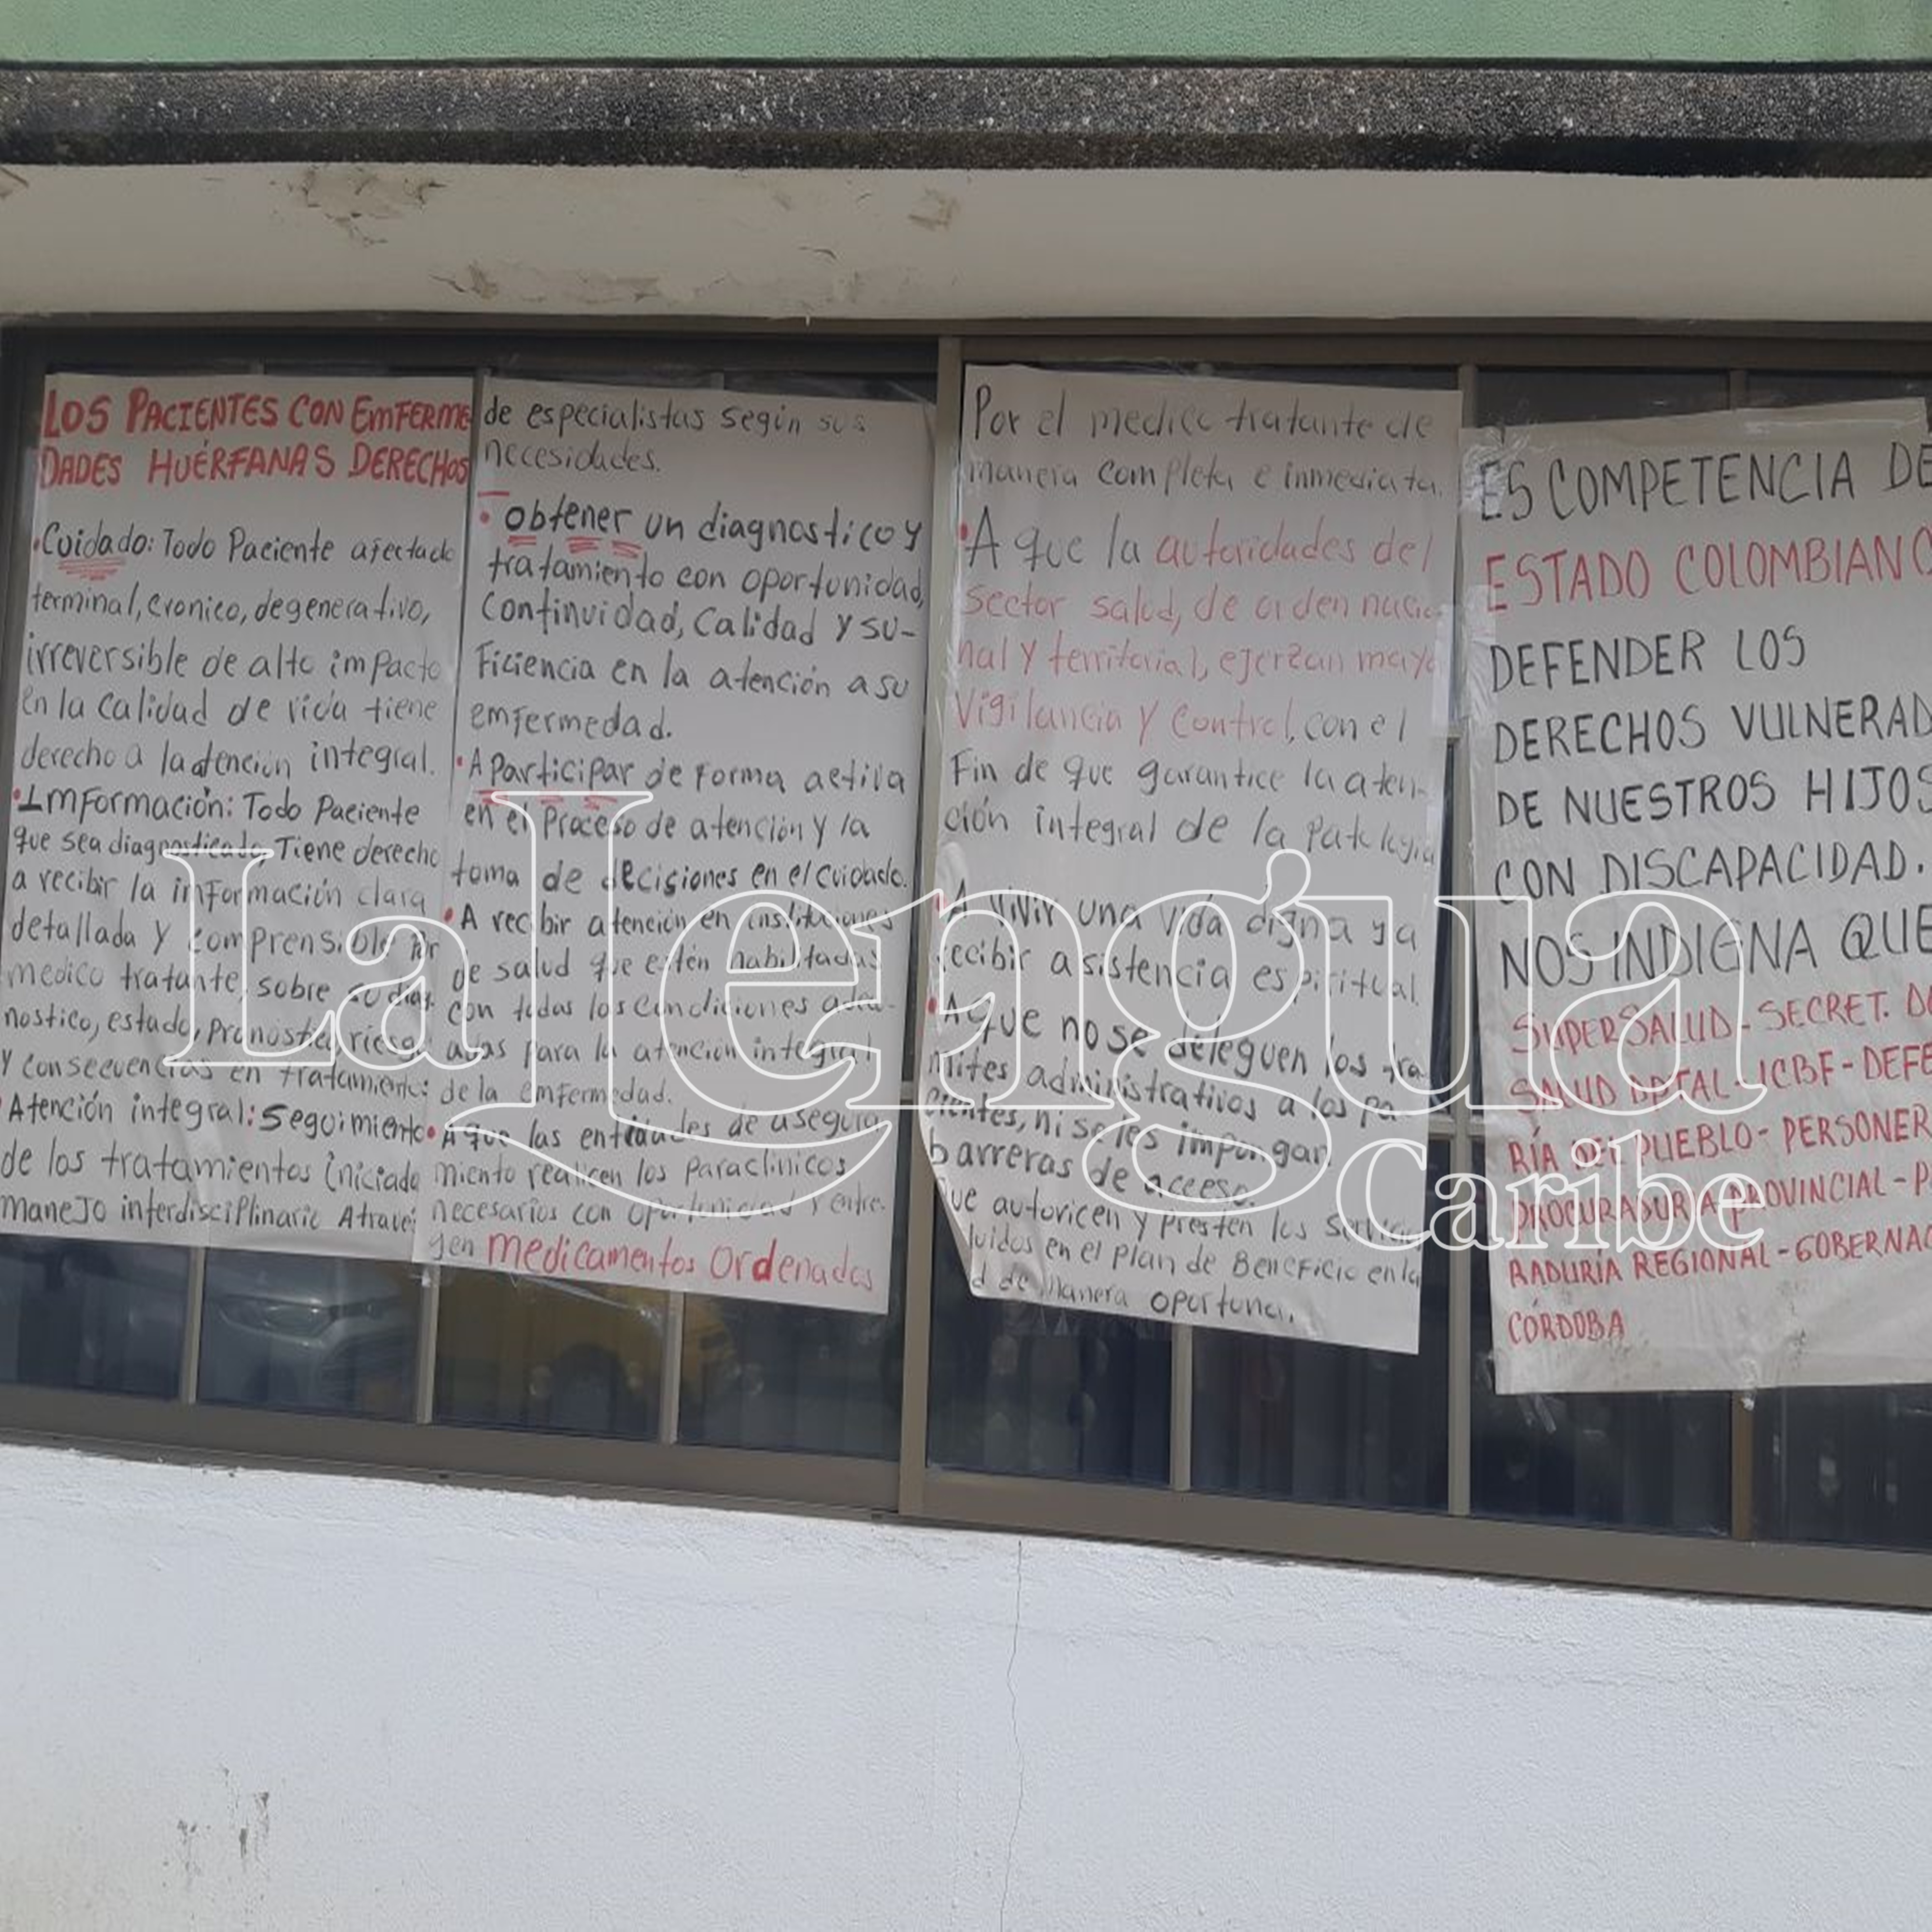 LOS PACIENTES CON EMFERME
DADES HUÉRFANAS DERECHOS
•Cuidado: Todo Paciente afectado
terminal, cronico, degenerativo,
irreversible de alto impacto
en la calidad de vida tiene
derecho a la atención integral.
•Imformación: Todo Paciente
que sea diagnosticado, Tiene derecho
a recibir la imformación clara
detallada y comprensible por
medico tratante, sobre su diag-
nostico, estado, pronostico, riesgo
y consecuencias en tratamiento:
•Atención integral: Seguimiento
de los tratamientos iniciado
manejo interdisciplinario Atravéz
de especialistas según sus
necesidades.
• obtener un diagnostico y
tratamiento con oportunidad,
continuidad, Calidad y su-
ficiencia en la atención a su
emfermedad.
•A participar de forma activa
en el proceso de atención y la
toma de decisiones en el cuidado.
•A recibir atención en instituciones
de salud que estén habilitadas
con todas las condiciones adecu-
adas para la atención integral
de la emfermedad.
•A que las entidades de asegura
miento realicen los paraclinicos
necesarios con oportunidad y entre-
gen medicamentos ordenados
Por el medico tratante de
manera completa e inmediata.
•A que la autoridades del
sector salud, de orden nacio
nal y territorial, ejerzan mayo
vigilancia y control, con el
Fin de que garantice la aten-
ción integral de la patología
•A vivir una vida digna y a
recibir asistencia espiritual.
•A que no se deleguen los tra-
mites administrativos a los pa-
cientes, ni se les impongan
barreras de acceso.
que autoricen y presten los servicios
luidos en el plan de Beneficio en la
d de manera oportuna.
ES COMPETENCIA DE
ESTADO COLOMBIANO
DEFENDER LOS
DERECHOS VULNERAD
DE NUESTROS HIJOS
CON DISCAPACIDAD.
NOS INDIGNA QUE
SUPERSALUD - SECRET. D
SALUD DPTAL - ICBF - DEFE
RÍA DEL PUEBLO - PERSONER
PROCURADURIA PROVINCIAL - P
RADURÍA REGIONAL - GOBERNAC
CÓRDOBA
La lengua
Caribe